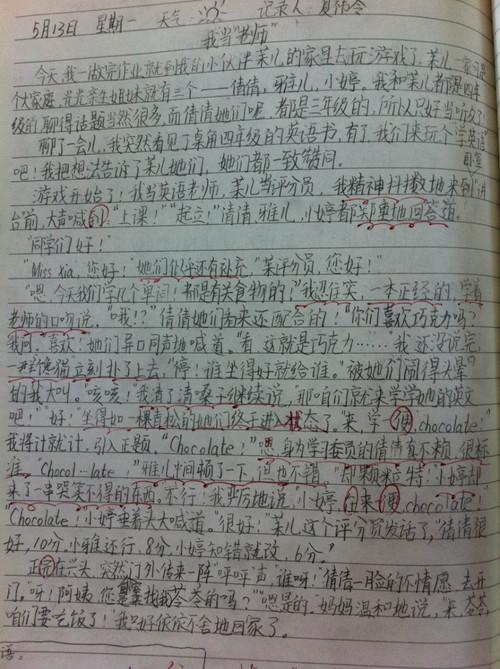 5月13日 星期一 天气: 记录人:夏伟令
我当"老师"
今天,我一做完作业就到我的小伙伴茉儿的家里去玩游戏了。茉儿一家是
个大家庭,光亲生姐妹就有三个——倩倩,雅儿,小婷。我和茉儿都是四年
级的,聊得话题当然很多,而倩倩她们呢,都是三年级的,所以只好当听友了!
聊了一会儿,我突然看见了桌角四年级的英语书,有了,我们来玩个学英语
吧!我把想法告诉了茉儿她们,她们都一致赞同。
游戏开始了!我当英语老师,茉儿当评分员,我精神抖擞地来到讲
台前,大声喊到:"上课!""起立!"倩倩,雅儿,小婷都郑重地回答道。
"同学们好!"
"Miss xia,您好!"她们似乎还有补充,"茉评分员,您好!"
"嗯,今天我们学几个单词!都是有关食物的!"我忍住笑,一本正经的,学着
老师的口吻说,"哦!?"倩倩她们看来还配合的!"你们喜欢巧克力吗?"
我问。喜欢!她们异口同声地喊道。"看,这就是巧克力……我还没说完,
一群馋猫立刻扑了上去,"停!谁坐得好就给谁。"被她们闹得头晕
的我大叫。"咳咳!我清了清嗓子继续说,那咱们就来学学她的英文
吧!""好!"坐得如一棵青松的她们终于进入状态了。"来,学 chocolate!"
我将计就计,引入正题。"Chocolate!""嗯,身为学习委员的倩倩真不赖,很标
准,"Chocol-late!"雅儿中间顿了一下,但也不错,却小婷却
来了一串哭笑不得的东西,不行!我严厉地说,小婷,chocolate!
"Chocolate!"小婷垂着头大喊道。"很好!"茉儿这个评分员发话了,"倩倩很
好,10分,小雅还行,8分,小婷知错就改,6分。"
正当在兴头,突然门外传来一阵"呼呼"声,"谁呀!"倩倩一脸的不情愿,去开
门。"呀!阿姨,您是找我苓苓的吗?""嗯是的,"妈妈温和地说,来,苓苓
咱们要吃饭了!"我只好依依不舍地回家了。
语: